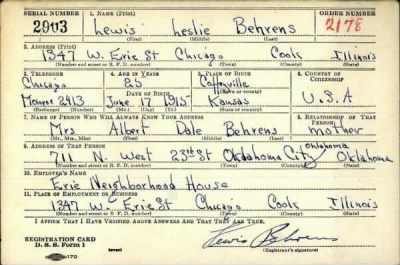 SERIAL NUMBER 1. NAME (Print) ORDER NUMBER
2903 Lewis Leslie Behrens 2178
(First) (Middle) (Last)
2. ADDRESS (Print)
1347 W. Erie St Chicago Cook Illinois
(Number and street or R. F. D. number) (Town) (County) (State)
3. TELEPHONE 4. AGE IN YEARS 5. PLACE OF BIRTH 6. COUNTRY OF CITIZENSHIP
Chicago 25
DATE OF BIRTH (Town or county)
Monroe 2413 June 17 1915 Kansas U.S.A
(Exchange) (Number) (Mo.) (Day) (Yr.) (State or country)
7. NAME OF PERSON WHO WILL ALWAYS KNOW YOUR ADDRESS 8. RELATIONSHIP OF THAT PERSON
Mrs Albert Dale Behrens mother
(Mr., Mrs., Miss) (First) (Middle) (Last)
9. ADDRESS OF THAT PERSON
711 N. West 23rd St Oklahoma City Oklahoma Oklahoma
(Number and street or R. F. D. number) (Town) (County) (State)
10. EMPLOYER'S NAME
Erie Neighborhood House
11. PLACE OF EMPLOYMENT OR BUSINESS
1347 W. Erie St Chicago Cook Illinois
(Number and street or R. F. D. number) (Town) (County) (State)
I AFFIRM THAT I HAVE VERIFIED ABOVE ANSWERS AND THAT THEY ARE TRUE.
REGISTRATION CARD
D. S. S. Form 1 Lewis Behrens
(Registrant's signature)